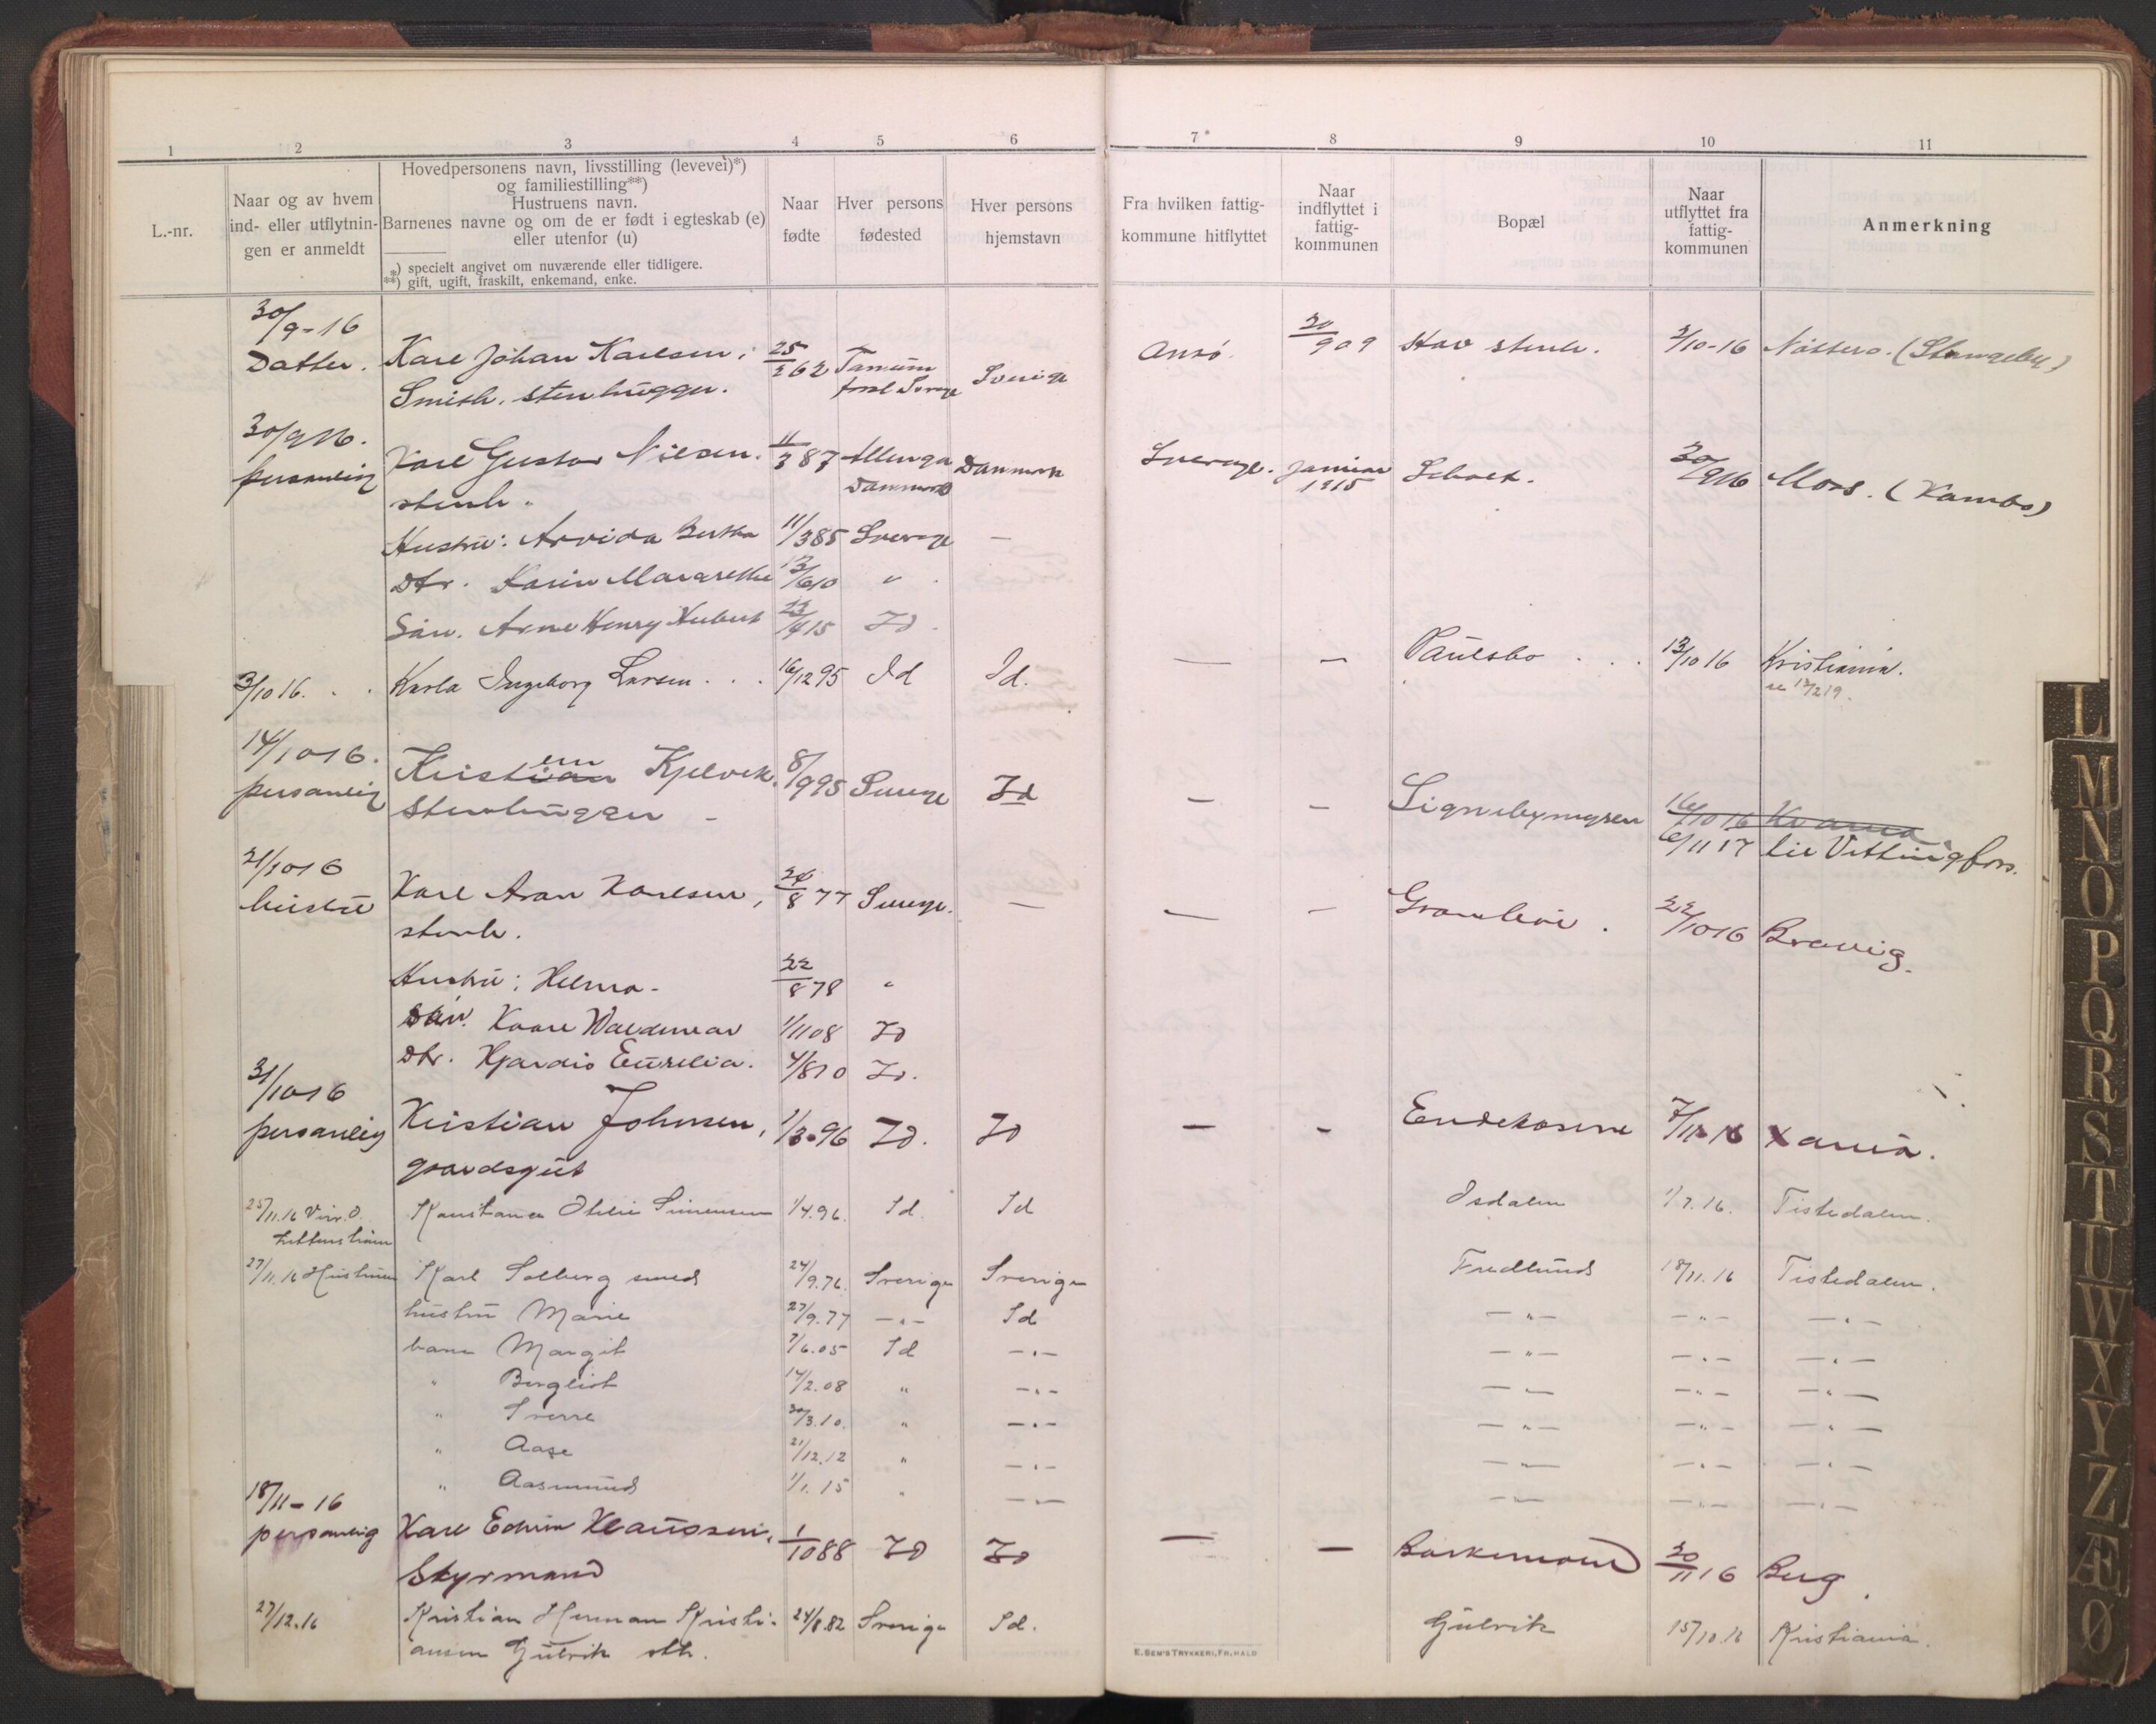 1 2 3 4 5 6 7* 8 9 10 11
L.-nr.
Naar og av hvem
ind- eller utflytnin-
gen er anmeldt
Hovedpersonens navn, livsstilling (levevei)*)
og familiestilling**)
Hustruens navn.
Barnenes navne og om de er født i egteskab (e)
eller utenfor (u)
*) specielt angivet om nuværende eller tidligere.
**) gift, ugift, fraskilt, enkemand, enke.
Naar
fødte
Hver persons
fødested
Hver persons
hjemstavn
Fra hvilken fattig-
kommune hitflyttet
Naar
indflyttet i
fattig-
kommunen
Bopæl
Naar
utflyttet fra
fattig-
kommunen
Anmerkning
30/9-16
Datter. Karl Johan Karlsen, 25/2 62 Tanum Sverige 20/9 09 Hov stenh. 2/10-16 Nøtterø. (Stangeby)
Smith. stenhugger.
30/9 16.
personlig Karl Gustav Nilsen. 11/3 87 Danmark Sverige. Januar 1915 30/9 16 Moss. (Kambo)
stenh. Danmark
Hustru: Arvida Bertha 11/3 85 Sverige —
Dtr. Karin Margrethe 13/6 10 "
Søn. Arne Henry Hubert 23/4 15 Id.
3/10 16. Karla Ingeborg Larsen 16/12 95 Id Id. — — Paulsbo 13/10 16 Kristiania.
14/10 16.
personlig Kristen Kjelvik. 8/9 95 Sverige Id — — Signebymyren 16/10 16 Kr ania
Stenhugger - 6/11 17 til Vittingfoss.
21/10 16
hustru Karl Aron Karlsen, 24/8 77 Sverige. — — — 22/10 16 Brevig.
stenh.
Hustru: Helma - 22/8 78 "
Søn. Kaare Waldemar 1/11 08 Id
Dtr. Hjørdis Eurelia. 4/8 10 Id.
31/10 16
personlig Kristian Johnsen, 1/3-96 Id. Id — - 7/11 16 Xania.
gaardsgut
25/11.16 Konstance Otelie Simensen 1/4.96. Id. Id Isdalen 1/7.16. Tistedalen.
27/11.16 Hustruen Karl Solberg smed 24/9.76. Sverige Sverige Fredlund 18/11.16 Tistedalen.
hustru Marie 27/9.77 —"— Id —"— —"— —"—
barn Margit 7/6.05 Id —"— —"— —"— —"—
" Bergliot 14/2.08 " —"— —"— —"— —"—
" Sverre 30/3.10. " —"— —"— —"— —"—
" Aase 21/12.12 " —"— —"— —"— —"—
" Aasmund 1/1.15 " —"— —"— —"— —"—
18/11-16
personlig Karl Edvin Klaussen, 1/10 88 Id Id — — 20/11 16 Berg.
Styrmand
27/12.16 Kristian Herman Kristi- 24/8.82 Sverige Id. Gulvik 15/10.16 Kristiania.
ansen Gulvik sth.
E. SEM'S TRYKKERI, FR.HALD
L
M
N
O
P
Q
R
S
T
U
W
X
Y
Z
Æ
Ø